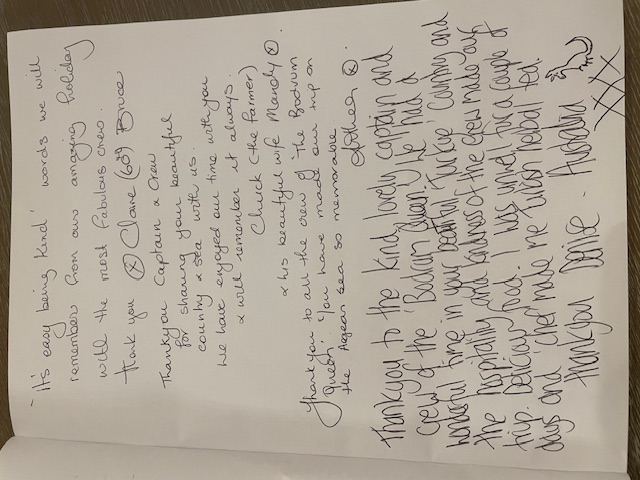 - It's easy being kind' words we will
remember from our amazing holiday
with the most fabulous crew.
Thank you ⓧ Claire (60!) Bruce
Thankyou Captain & Crew
for sharing your beautiful
country & sea with us.
We have enjoyed our time with you
& will remember it always.
Chuck (the farmer)
& his beautiful wife Mandy ⓧ.
Thank you to all the crew of 'The Bodrum
Queen'. You have made our trip on
the Aegean sea so memorable
ⓧ.
Thankyou to the kind, lovely captain and
crew of the 'Bodrum Queen'. We had a
wonderful time in your beautiful Turkiye country and
the hospitality and kindness of the crew made our
trip. Delicious food. I was unwell for a couple of
days and 'chef' made me Turkish herbal tea.
Thankyou Denise - Australia
XXX